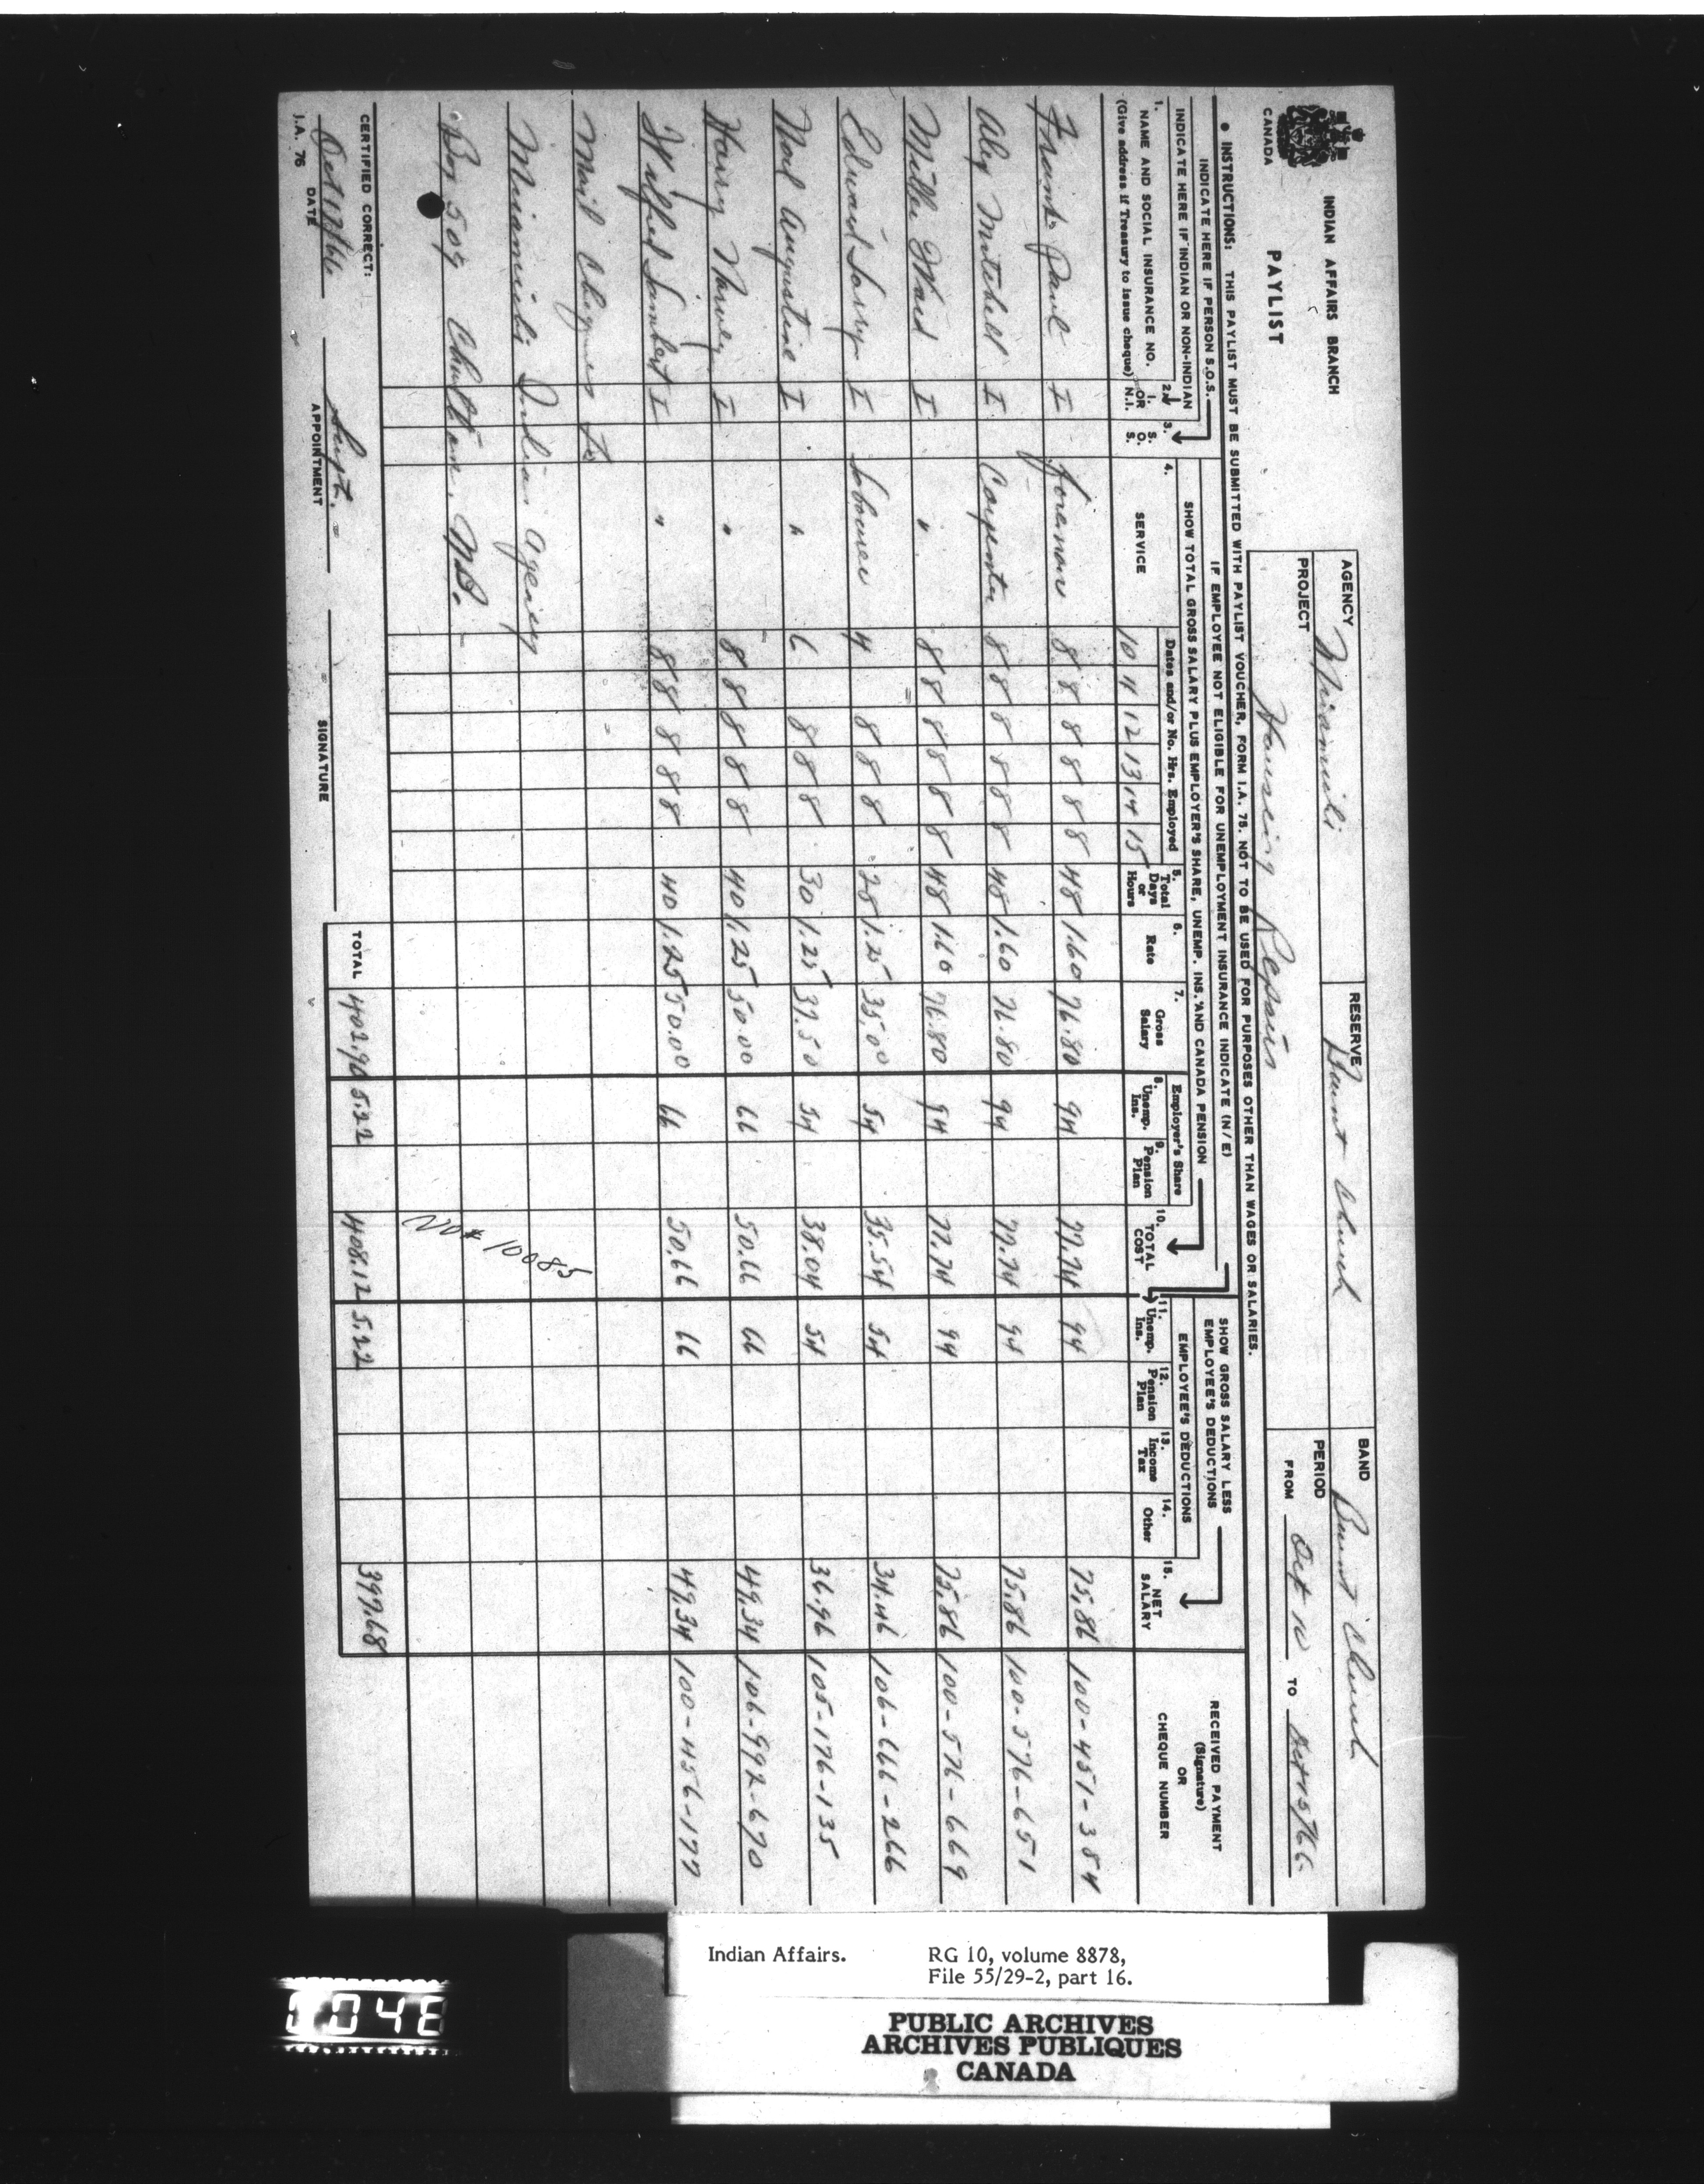 INDIAN AFFAIRS BRANCH
CANADA
PAYLIST
AGENCY Miramichi
RESERVE Burnt Church
BAND Burnt Church
PROJECT Housing Repairs
PERIOD
FROM Oct 10 TO Oct 15/66
• INSTRUCTIONS: THIS PAYLIST MUST BE SUBMITTED WITH PAYLIST VOUCHER, FORM I.A. 75. NOT TO BE USED FOR PURPOSES OTHER THAN WAGES OR SALARIES.
INDICATE HERE IF PERSON S.O.S.
IF EMPLOYEE NOT ELIGIBLE FOR UNEMPLOYMENT INSURANCE INDICATE (N/E)
SHOW GROSS SALARY LESS EMPLOYEE'S DEDUCTIONS
INDICATE HERE IF INDIAN OR NON-INDIAN
SHOW TOTAL GROSS SALARY PLUS EMPLOYER'S SHARE, UNEMP. INS. AND CANADA PENSION
1. NAME AND SOCIAL INSURANCE NO. (Give address if Treasury to issue cheque)
2. I. OR N.I.
3. S. O. S.
4. SERVICE
Dates and/or No. Hrs. Employed
10 11 12 13 14 15
5. Total Days or Hours
6. Rate
7. Gross Salary
Employer's Share
8. Unemp. Ins.
9. Pension Plan
10. TOTAL COST
EMPLOYEE'S DEDUCTIONS
11. Unemp. Ins.
12. Pension Plan
13. Income Tax
14. Other
15. NET SALARY
RECEIVED PAYMENT (Signature) OR CHEQUE NUMBER
Frank Paul I Foreman 8 8 8 8 8 8 48 1.60 76.80 94 77.74 94 75.86 100-451-384
Alex Mitchell I Carpenter 8 8 8 8 8 8 48 1.60 76.80 94 77.74 94 75.86 100-576-651
Miller Ward I " 8 8 8 8 8 8 48 1.60 76.80 94 77.74 94 75.86 100-576-669
Edward Lorry I Labourer 4 8 8 8 28 1.25 35.00 54 35.54 54 34.46 106-666-266
Noel Augustine I " 6 8 8 8 30 1.25 37.50 54 38.04 54 36.96 105-176-135
Harry Narvey I " 8 8 8 8 8 40 1.25 50.00 66 50.66 66 49.34 106-992-670
Wilfred Lambert I " 8 8 8 8 8 40 1.25 50.00 66 50.66 66 49.34 100-456-177
Mail Cheques to
Miramichi Indian Agency
Box 509 Chatham, N.B.
VO# 10085
CERTIFIED CORRECT:
TOTAL 402.90 5.22 408.12 5.22 397.68
Oct 17/66 Supt.
DATE APPOINTMENT SIGNATURE
I.A. 76
Indian Affairs. RG 10, volume 8878,
File 55/29-2, part 16.
PUBLIC ARCHIVES
ARCHIVES PUBLIQUES
CANADA